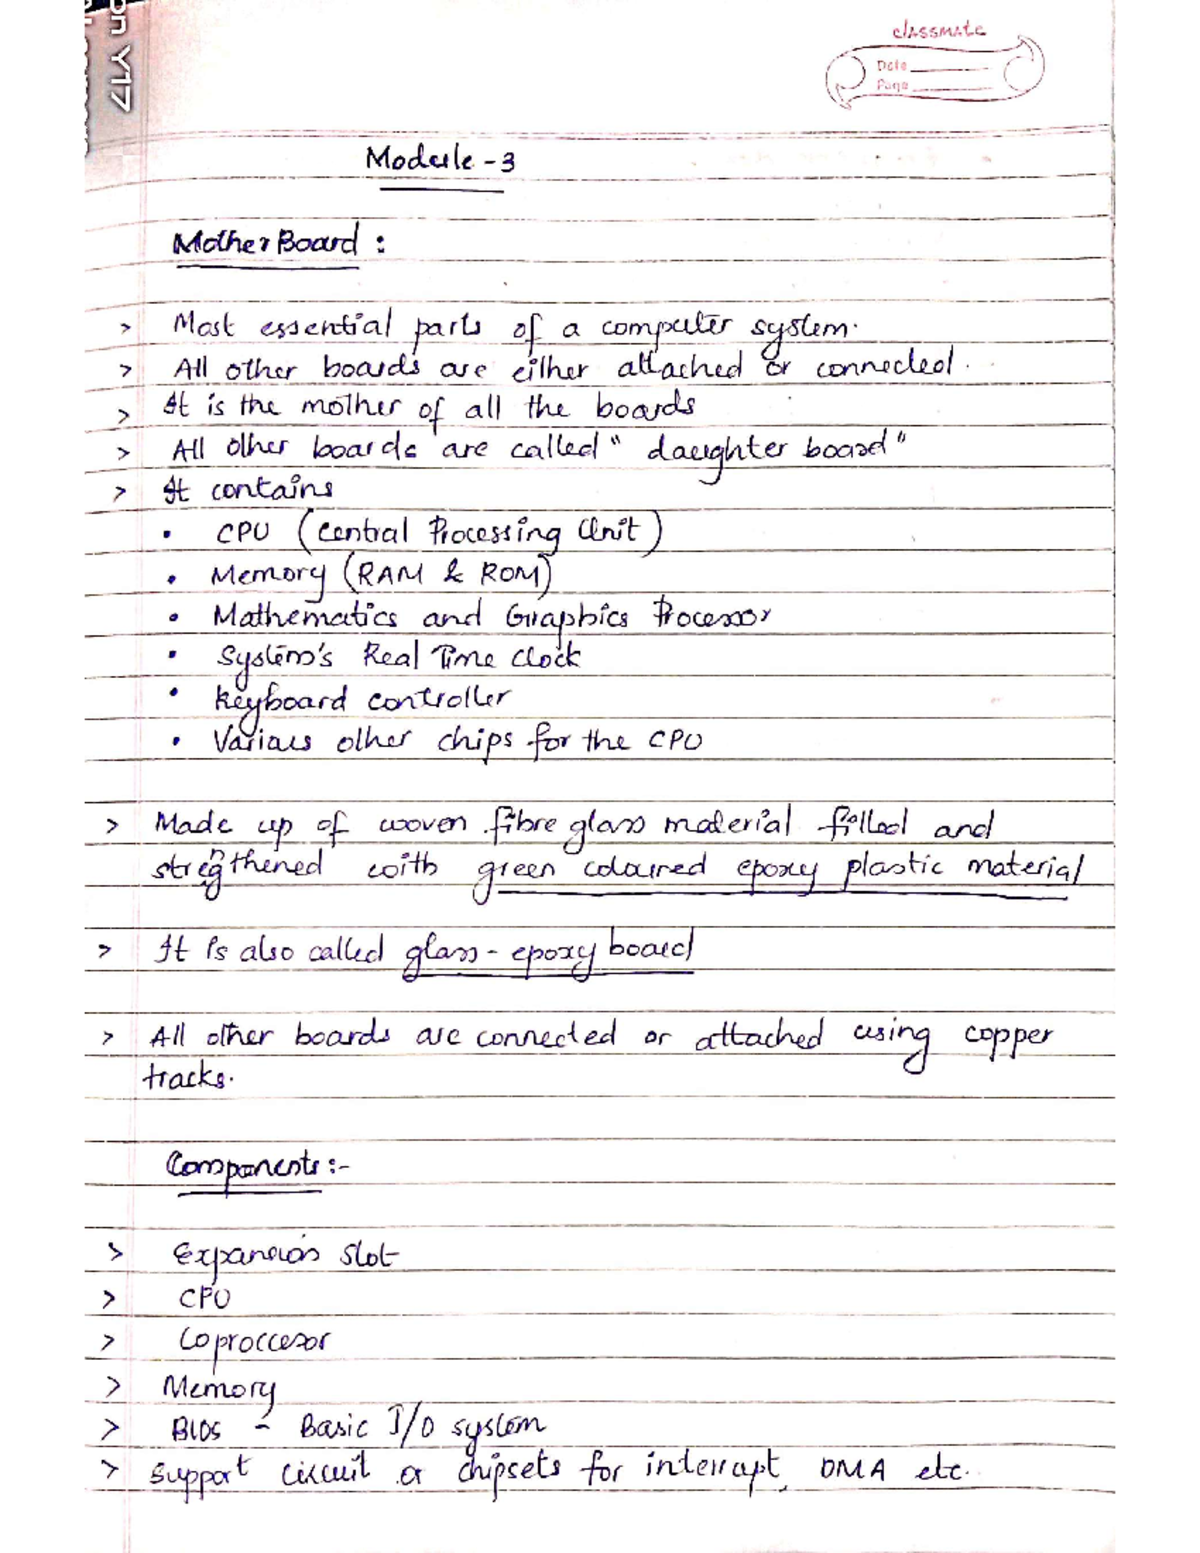 on Y17
classmate
Date
Page
Module - 3
MotherBoard :
> Most essential parts of a computer system.
> All other boards are either attached or connected.
> It is the mother of all the boards
> All other boards are called "daughter board"
> It contains
• CPU (Central Processing Unit)
• Memory (RAM & ROM)
• Mathematics and Graphics Processor
• System's Real Time Clock
• Keyboard controller
• Various other chips for the CPU
> Made up of woven fibre glass material filled and
stregnthened with green coloured epoxy plastic material
> It is also called glass - epoxy board
> All other boards are connected or attached using copper
tracks.
Components :-
> Expansion Slot
> CPU
> Coproccesor
> Memory
> BIOS - Basic I/O system
> Support circuit or chipsets for interrupt, DMA etc.